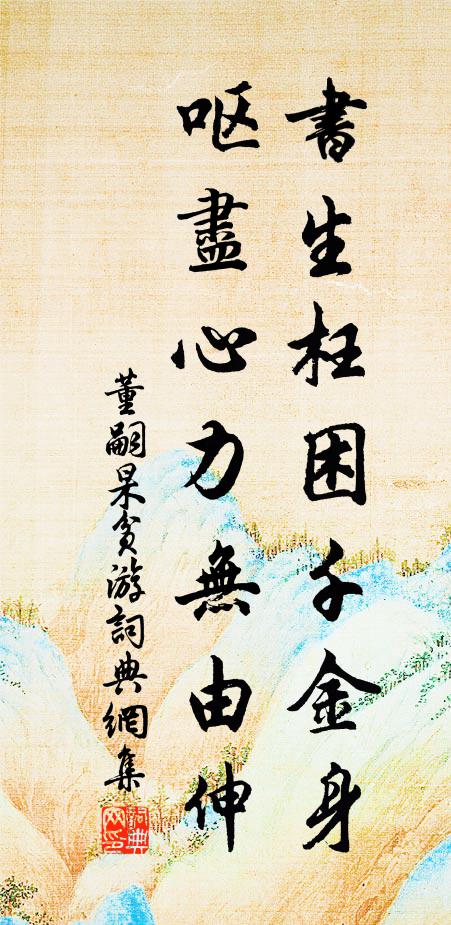 書生枉困千金身
呕盡心力無由伸
董嗣杲貧游詞典網集
詞典網印